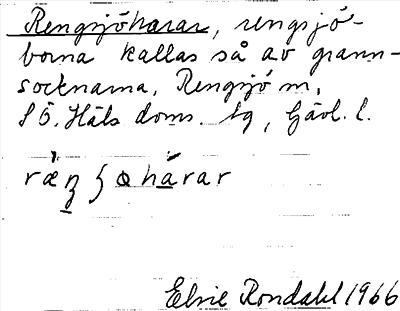 Rengsjöharar, rengsjö-
borna kallas så av grann-
socknarna. Rengsjö sn,
S Ö. Häls doms. tg, Gävl. l.
ræŋʃɷharar
Elsie Rondahl 1966